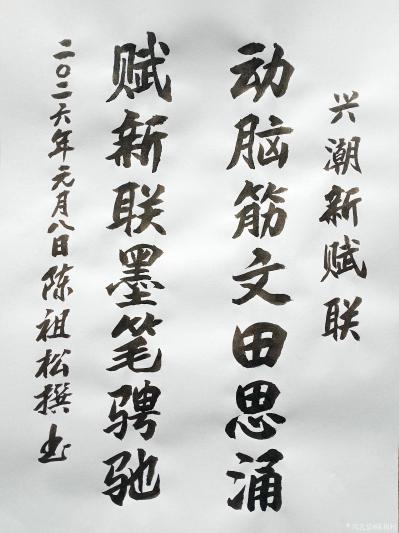 兴潮新赋联
动脑筋文田思涌
赋新联墨笔骋驰
二〇二六年元月八日陈祖松撰书